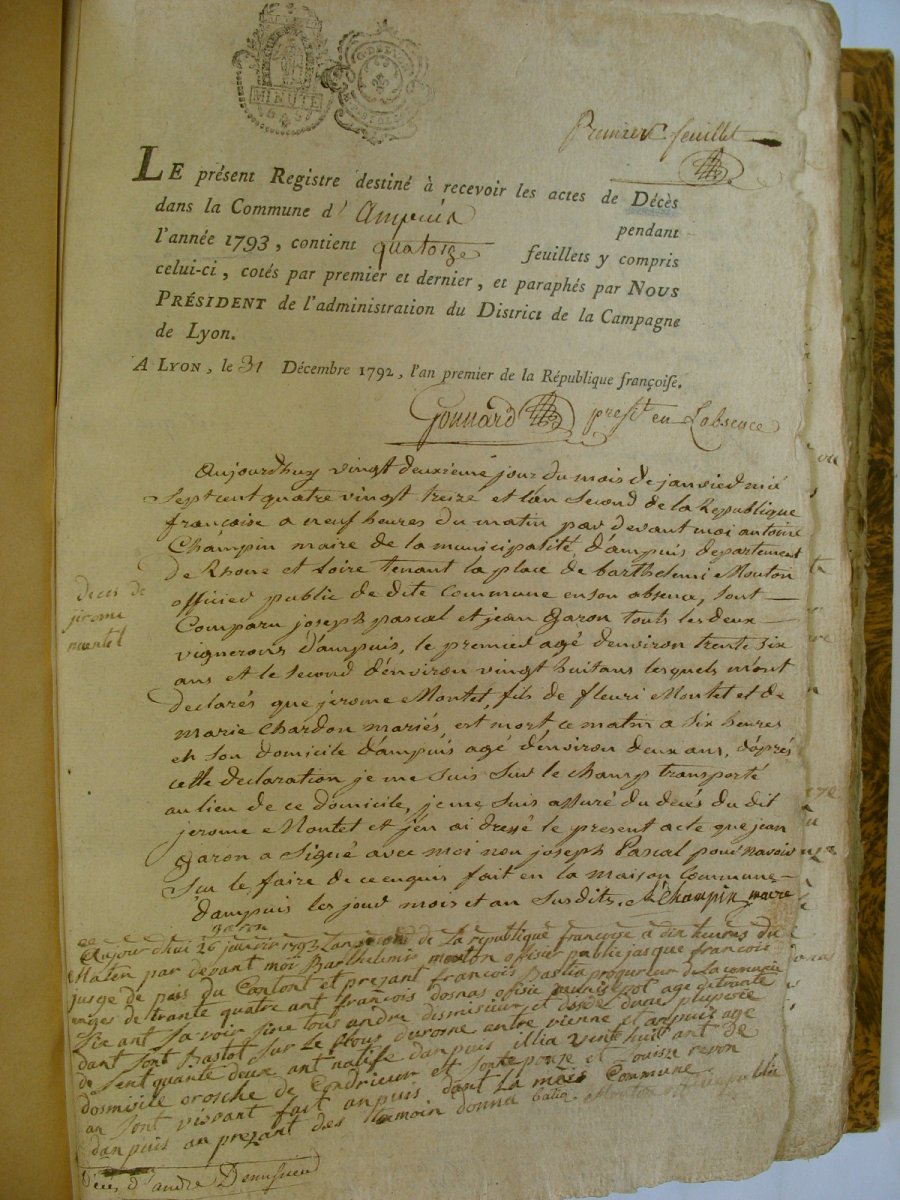 MINUTE
Premier feuillet
LE présent Registre destiné à recevoir les actes de Décès
dans la Commune d' Ampuis pendant
l'année 1793, contient quatorze feuillets y compris
celui-ci, cotés par premier et dernier, et paraphés par NOUS
PRÉSIDENT de l'administration du District de la Campagne
de Lyon.
A LYON, le 31 Décembre 1792, l'an premier de la République françoise.
Gonnard presdt en Labsence
Aujourdhuy vingt deuxieme jour du mois de janvier mil
Sept cent quatre vingt treize et lan second de la Republique
françoise a neuf heures du matin par devant moi antoine
Champin maire de la municipalité d'ampuis departement
de Rhone et Loire tenant la place de barthelemi Mouton
officier public de dite Commune en son absence, sont
Comparu joseph pascal et jean Garon touts les deux
vignerons d'ampuis, le premier agé d'environ trente six
ans et le second d'environ vingt huit ans lesquels m'ont
declarés que jerome Montet, fils de fleuri Montet et de
marie Chardon mariés, est mort ce matin a six heures
en son domicile d'ampuis agé d'environ deux ans, d'aprés
cette declaration je me suis sur le champ transporté
au lieu de ce domicile, je me suis assuré du decés du dit
jerome Montet et j'en ai dressé le present acte que jean
Garon a signé avec moi non joseph Pascal pour n'avoir
Sçu le faire de ce enquis fait en la maison Commune
d'ampuis les jour mois et an susdits. A Champin maire
garon
deces de
jerome
montet
Aujour d'hui 26 janvier 1793 Lan second de La republique françoge a dix heures du
Maten par devant moi Barthelemis mouton offisier public jasque francois
jusge de pais du Contont et prezant francois Bastia procureur de la comune
anges de trante quatre ant francois dosnas ofisié munisipol age de trante
Sice ant La voir
dant sont Bastot sur Le Rosne entre vienne et anpuis age
de sent quante deux ant natife danpuis illia vente huit ant de
dosmisile de Condrieux et Louise revon
an sont vivant fait anpuis dant La mèson Commune
danpuis an prezant des temoin donna Mouton public
Deces d'andré